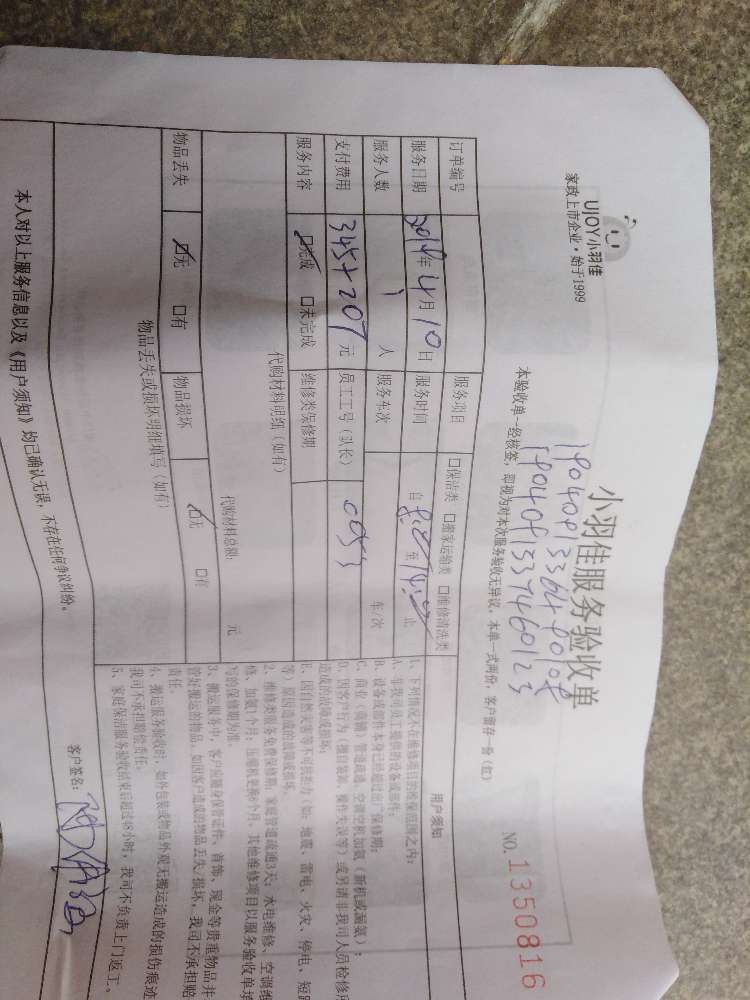 UJOY小羽佳
家政上市企业·始于1999
小羽佳服务验收单
NO.1350816
本验收单一经核签，即视为对本次服务验收无异议，本单一式两份，客户留存一份（红）
订单编号
服务项目 □保洁类 □搬家运输类 □维修清洗类
服务日期 2019年4月10日 服务时间 自 至 止
服务人数 1 人 服务车次 车/次
支付费用 345+207 元 员工工号（队长） 0053
服务内容 ☑完成 □未完成 维修类保修期
代购材料明细（如有）
代购材料总额： 元
物品丢失 ☑无 □有 物品损坏 ☑无 □有
物品丢失或损坏明细填写（如有）
用户须知
1、下列情况不在维修项目的维保范围之内：
A、非我司员工提供的设备或部件；
B、设备或部件本身已经超过出厂保修期；
C、商业（商铺）管道疏通、空调空机加氨（新机或漏氨）；
D、因客户行为（擅自装卸、操作失误等）或另请非我司人员检修
造成的故障或损坏；
E、因自然灾害等不可抗拒力（如：地震、雷电、火灾、停电、短
等）原因造成的故障或损坏。
2、维修类服务免费保修期：家庭管道疏通3天；水电维修、空调维
修、加氨1个月；压缩机更换6个月，其他维修项目以服务验收单
写的保修期为准。
3、搬运服务中，客户应随身保管证件、首饰、现金等贵重物品并
管好搬运的物品，如因客户造成的物品丢失/损坏，我司不承担赔
责任。
4、搬运服务验收时，如外包装或物品外观无搬运造成的损伤痕迹
我司不承担赔偿责任。
5、家庭保洁服务验收结束后超过48小时，我司不负责上门返工。
本人对以上服务信息以及《用户须知》均已确认无误，不存在任何争议纠纷。
客户签名：